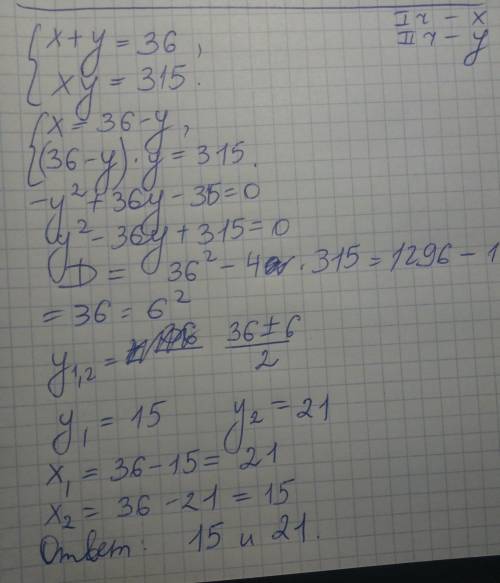 I ч - x
II ч - y
{ x + y = 36,
xy = 315.
{ x = 36 - y,
(36 - y) · y = 315.
-y² + 36y - 315 = 0
y² - 36y + 315 = 0
D = 36² - 4 · 315 = 1296 - 1
= 36 = 6²
y₁,₂ = (36 ± 6) / 2
y₁ = 15 y₂ = 21
x₁ = 36 - 15 = 21
x₂ = 36 - 21 = 15
Ответ: 15 и 21.